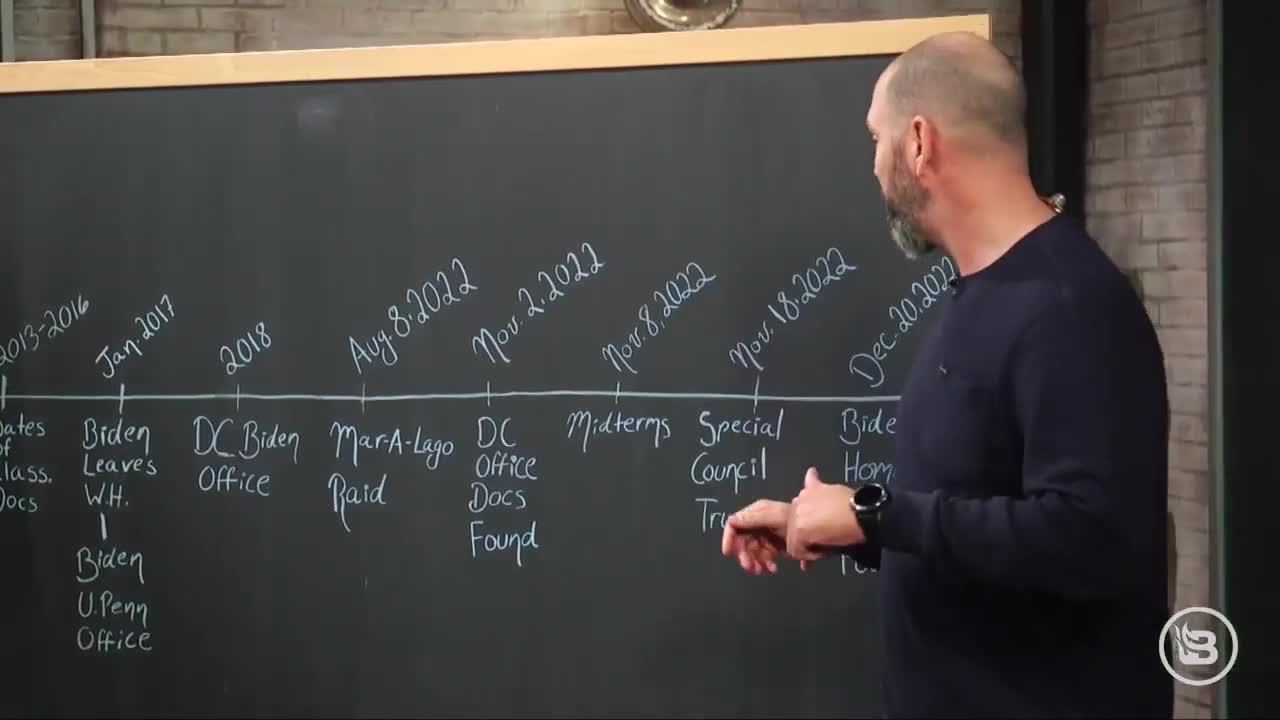 2013-2016
Jan. 2017
2018
Aug. 8. 2022
Nov. 2. 2022
Nov. 8, 2022
Nov. 18. 2022
Dec. 20. 2022
of
Biden
Leaves
W.H.
Biden
U. Penn
Office
DC Biden
Office
Mar-A-Lago
Raid
DC
Office
Docs
Found
Midterms
Special
Council
B